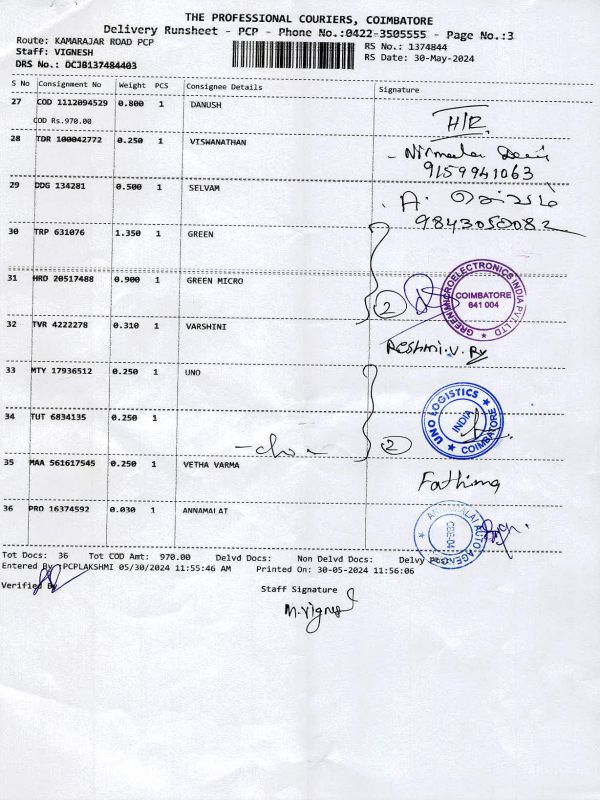 THE PROFESSIONAL COURIERS, COIMBATORE
Delivery Runsheet - PCP - Phone No.:0422-3505555 - Page No.:3
Route: KAMARAJAR ROAD PCP
RS No.: 1374844
Staff: VIGNESH
RS Date: 30-May-2024
DRS No.: DCJB137484403
S No Consignment No Weight PCS Consignee Details Signature
27 COD 1112094529 0.800 1 DANUSH
COD Rs.970.00
H/R
28 TDR 100042772 0.250 1 VISWANATHAN
9159941063
29 DDG 134281 0.500 1 SELVAM
A.
9843050082
30 TRP 631076 1.350 1 GREEN
31 HRD 20517488 0.900 1 GREEN MICRO
2
GREEN MICROELECTRONICS INDIA PVT. LTD
COIMBATORE
641 004
32 TVR 4222278 0.310 1 VARSHINI
Reshmi.V.
33 MTY 17936512 0.250 1 UNO
UNO LOGISTICS
INDIA
COIMBATORE
34 TUT 6834135 0.250 1
2
35 MAA 561617545 0.250 1 VETHA VARMA
Fathima
36 PRO 16374592 0.030 1 ANNAMALAT
ANNAMALAI AUTO AGENCY
Tot Docs: 36 Tot COD Amt: 970.00 Delvd Docs: Non Delvd Docs: Delvy
Entered By PCPLAKSHMI 05/30/2024 11:55:46 AM Printed On: 30-05-2024 11:56:06
Verified By
Staff Signature
M.Vignesh